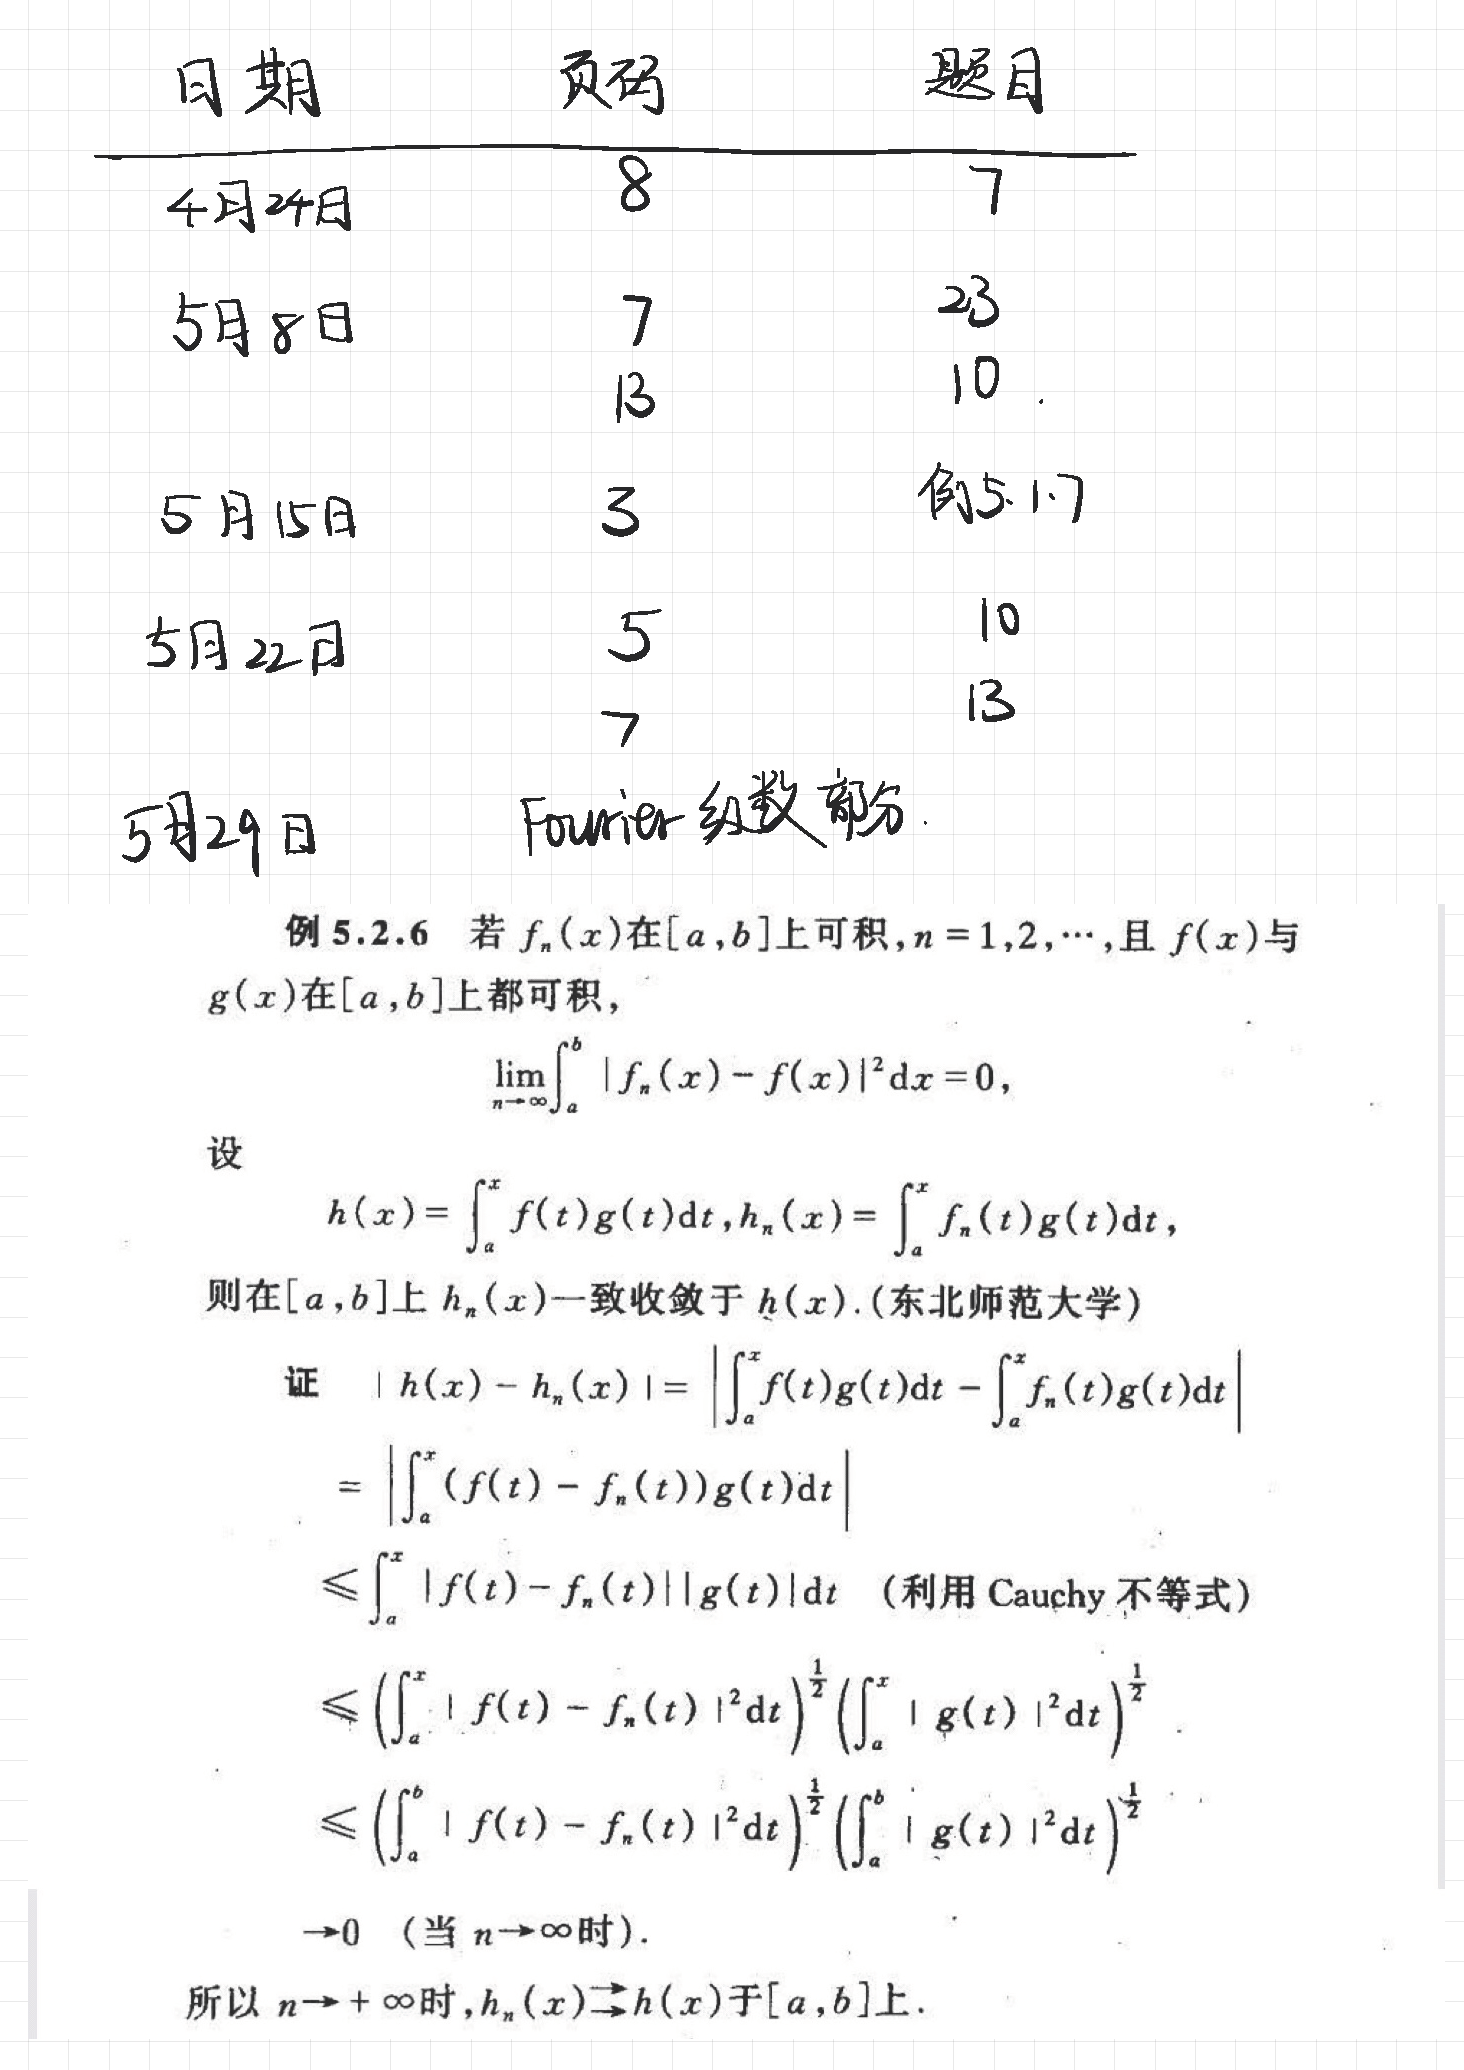 日期 页码 题目
4月24日 8 7
5月8日 7 23
13 10.
5月15日 3 例5.1.7
5月22日 5 10
7 13
5月29日 Fourier级数部分.
例 5.2.6 若 fₙ(x)在[a,b]上可积,n=1,2,⋯,且 f(x)与
g(x)在[a,b]上都可积,
lim_{n→∞}∫ₐᵇ |fₙ(x)-f(x)|²dx=0,
设
h(x)=∫ₐˣ f(t)g(t)dt,hₙ(x)=∫ₐˣ fₙ(t)g(t)dt,
则在[a,b]上 hₙ(x)一致收敛于 h(x).(东北师范大学)
证 |h(x)-hₙ(x)|=|∫ₐˣ f(t)g(t)dt-∫ₐˣ fₙ(t)g(t)dt|
=|∫ₐˣ (f(t)-fₙ(t))g(t)dt|
≤∫ₐˣ |f(t)-fₙ(t)||g(t)|dt (利用 Cauchy 不等式)
≤(∫ₐˣ |f(t)-fₙ(t)|²dt)^{1/2}(∫ₐˣ |g(t)|²dt)^{1/2}
≤(∫ₐᵇ |f(t)-fₙ(t)|²dt)^{1/2}(∫ₐᵇ |g(t)|²dt)^{1/2}
→0 (当 n→∞时).
所以 n→+∞时,hₙ(x)⇉h(x)于[a,b]上.